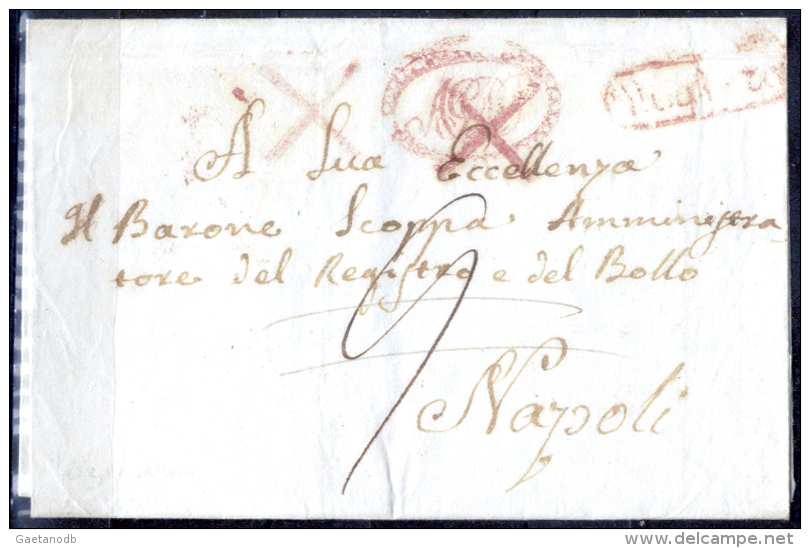 A Sua Eccellenza
Il Barone Scoppa Amministra-
tore del Registro e del Bollo
9
Napoli
Gaetanodb
delcampe.net